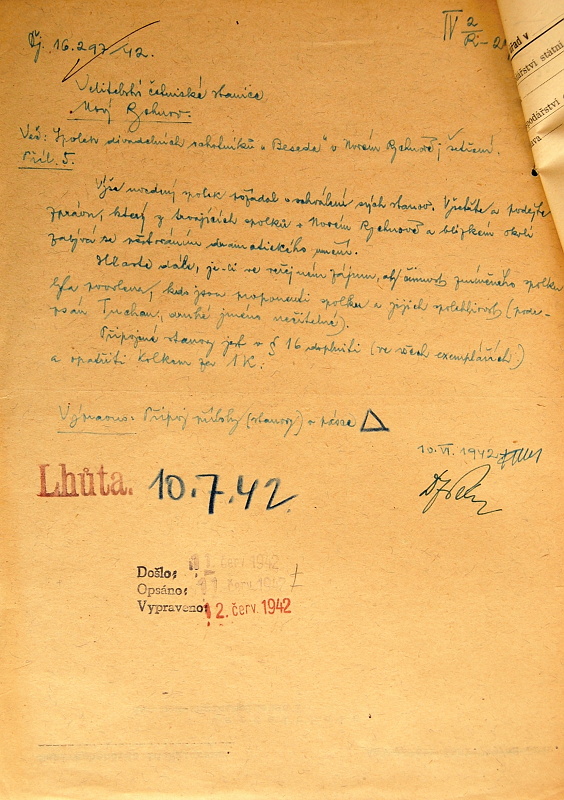 Čj. 16.297/42.
IV 2
úřad v
Velitelství četnické stanice
Nový Bydžov.
Věc: Spolek divadelních ochotníků „Beseda“ v Novém, šetření.
Příl. 5.
Výše uvedený spolek požádal o schválení svých stanov. Vyšetřte a podejte
zprávu, který z tamějších spolků v Novém a blízkém okolí
zabývá se pěstováním dramatického umění.
Hlaste dále, je-li ve veřejném zájmu, aby činnost zmíněného spolku
byla povolena, kdo jsou proponenti spolku a jejich spolehlivost (pode-
psán, druhé jméno nečitelné).
Připojené stanovy jest v § 16 doplniti (ve všech exemplářích)
a opatřiti kolkem za 1K.
Výpravno: Připoj přílohy (stanovy) a
10. VI. 1942
Lhůta. 10.7.42.
Došlo: 11. červ. 1942
Opsáno: 11. červ. 1942
Vypraveno: 12. červ. 1942